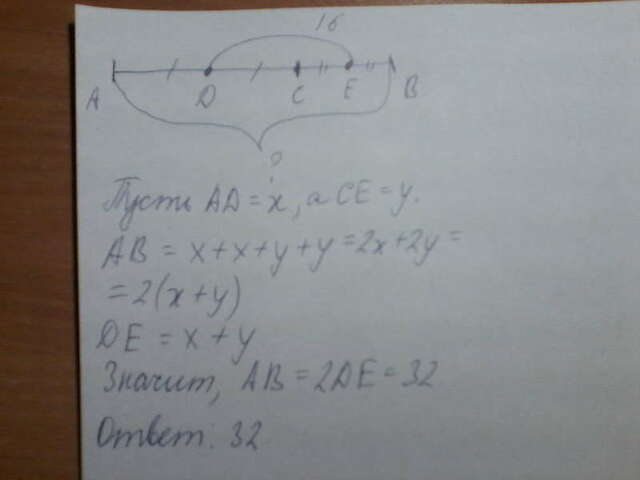 16
A D C E B
?
Пусть AD = x, а CE = y.
AB = x + x + y + y = 2x + 2y =
= 2(x + y)
DE = x + y
Значит, AB = 2DE = 32
Ответ: 32